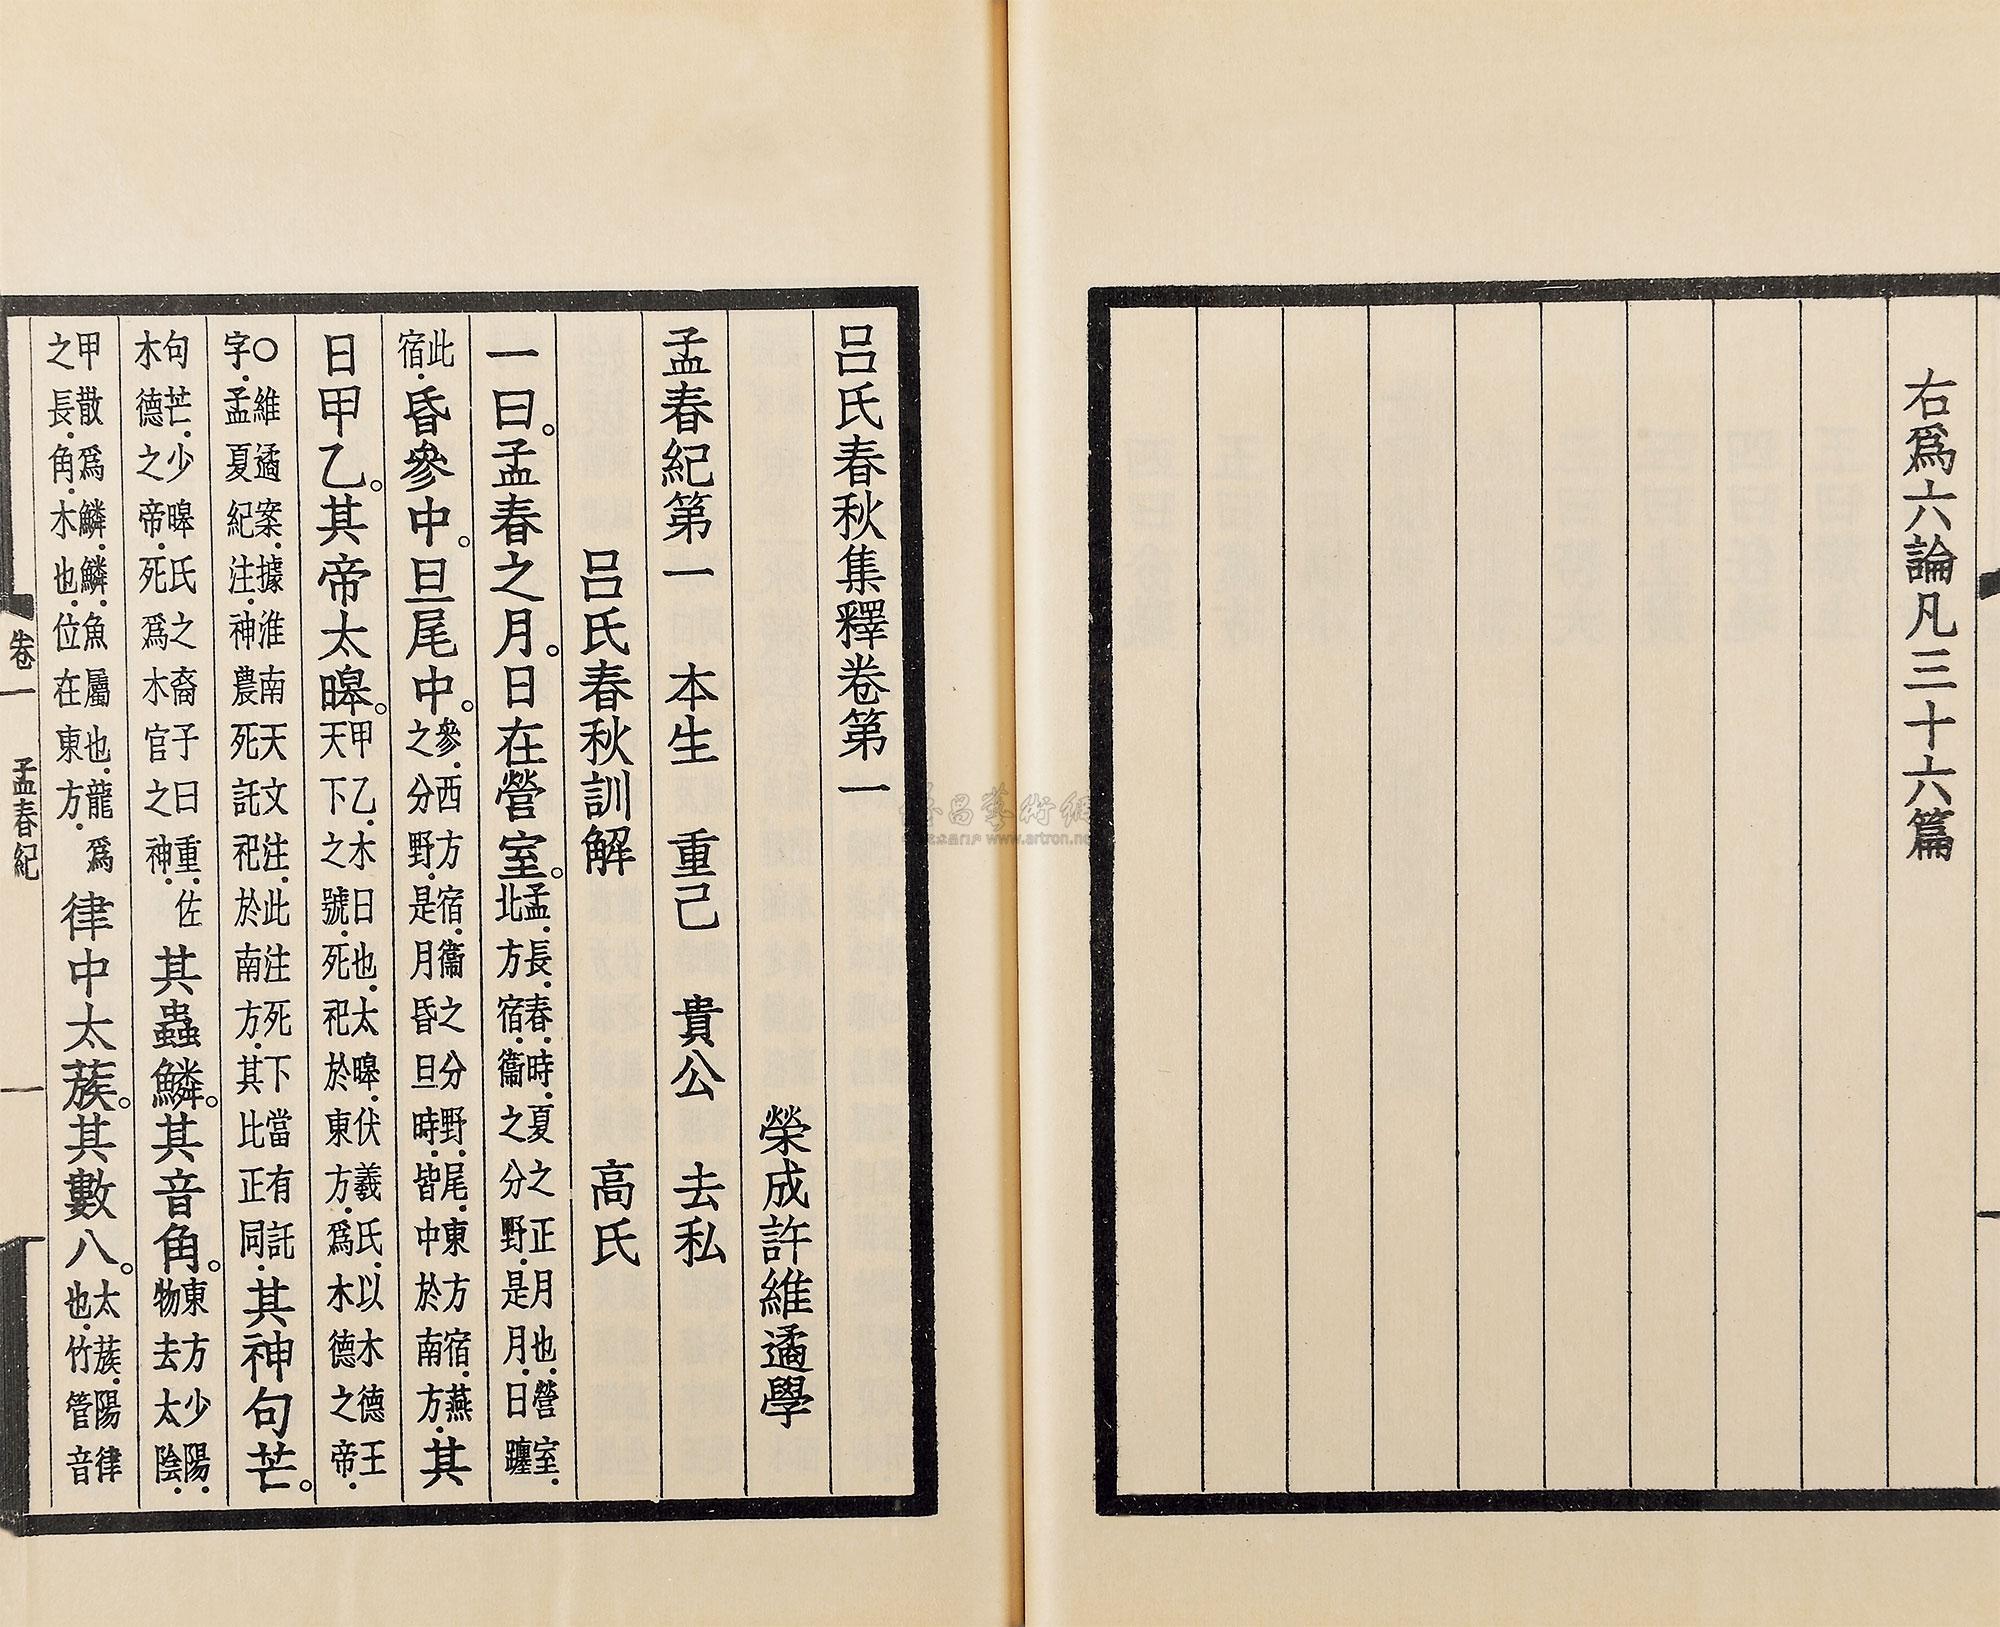 右爲六論凡三十六篇
呂氏春秋集釋卷第一
榮成許維遹學
孟春紀第一 本生 重己 貴公 去私
呂氏春秋訓解 高氏
一曰。孟春之月。日在營室。孟.長.春.時.夏之正月也.營室.北方宿.衞之分野.是月.日躔
此宿.昏參中。旦尾中。參.西方宿.衞之分野.尾.東方宿.燕之分野.是月昏旦時.皆中於南方.其
日甲乙。其帝太皞。甲乙.木日也.太皞.伏羲氏.以木德王天下之號.死祀於東方.爲木德之帝.
〇維遹案.據淮南天文注.此注死下當有託字.孟夏紀注.神農死託祀於南方.其比正同.其神句芒。
句芒.少皞氏之裔子曰重.佐木德之帝.死爲木官之神.其蟲鱗。其音角。東方少陽.物去太陰.
甲散爲鱗.鱗.魚屬也.龍爲之長.角.木也.位在東方.律中太蔟。其數八。太蔟.陽律也.竹管音
卷一 孟春紀 一
www.artron.net